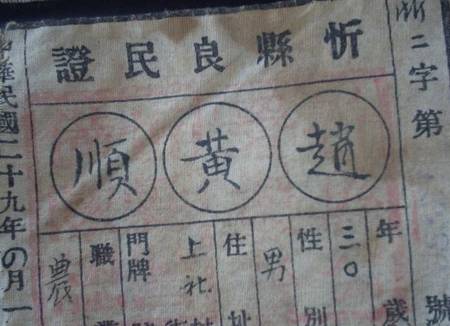 忻二字第
號
忻縣良民證
趙黃順
年三〇歲
性別男
住址上社
門牌
職業農
中華民國二十九年〇月一